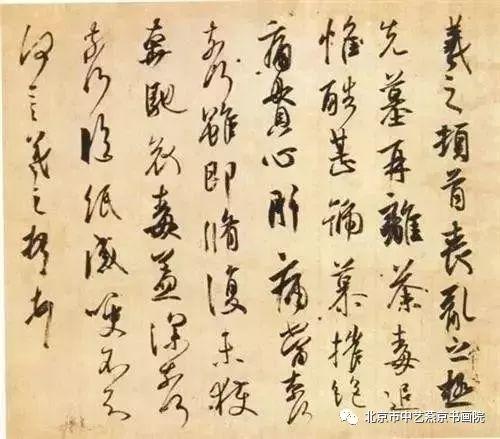 羲之頓首喪亂之極
先墓再離荼毒追
惟酷甚號慕摧絕
痛貫心肝痛當奈何
奈何雖即脩復未獲
奔馳哀毒益深奈何
奈何臨紙感哽不知
何言羲之頓首頓首
北京市中艺燕京书画院